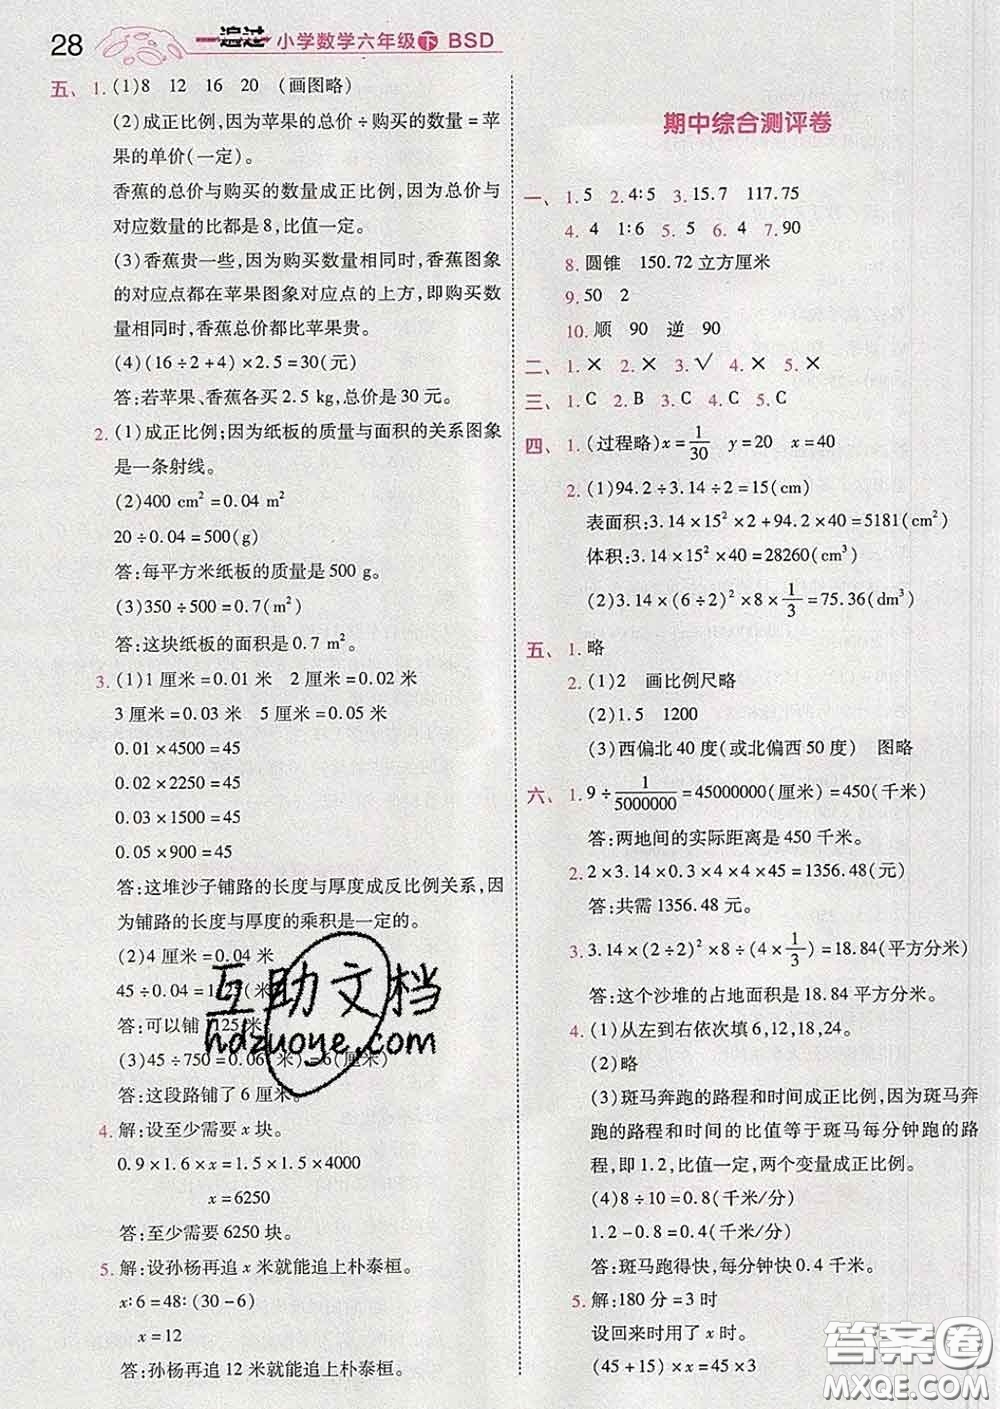 28 一遍过 小学数学六年级 下 BSD
五、1.(1)8 12 16 20 (画图略)
(2)成正比例,因为苹果的总价÷购买的数量=苹
果的单价(一定)。
香蕉的总价与购买的数量成正比例,因为总价与
对应数量的比都是8,比值一定。
(3)香蕉贵一些,因为购买数量相同时,香蕉图象
的对应点都在苹果图象对应点的上方,即购买数
量相同时,香蕉总价都比苹果贵。
(4)(16÷2+4)×2.5=30(元)
答:若苹果、香蕉各买2.5 kg,总价是30元。
2.(1)成正比例;因为纸板的质量与面积的关系图象
是一条射线。
(2)400 cm²=0.04 m²
20÷0.04=500(g)
答:每平方米纸板的质量是500 g。
(3)350÷500=0.7(m²)
答:这块纸板的面积是0.7 m²。
3.(1)1厘米=0.01米 2厘米=0.02米
3厘米=0.03米 5厘米=0.05米
0.01×4500=45
0.02×2250=45
0.03×1500=45
0.05×900=45
答:这堆沙子铺路的长度与厚度成反比例关系,因
为铺路的长度与厚度的乘积是一定的。
(2)4厘米=0.04米
45÷0.04=1125(米)
答:可以铺1125米。
(3)45÷750=0.06(米)=6(厘米)
答:这段路铺了6厘米。
4.解:设至少需要x块。
0.9×1.6×x=1.5×1.5×4000
x=6250
答:至少需要6250块。
5.解:设孙杨再追x米就能追上朴泰桓。
x∶6=48∶(30-6)
x=12
答:孙杨再追12米就能追上朴泰桓。
期中综合测评卷
一、1.5 2.4∶5 3.15.7 117.75
4.4 1∶6 5.5 6.4 7.90
8.圆锥 150.72立方厘米
9.50 2
10.顺 90 逆 90
二、1.× 2.× 3.√ 4.× 5.×
三、1.C 2.B 3.C 4.C 5.C
四、1.(过程略)x=1/30 y=20 x=40
2.(1)94.2÷3.14÷2=15(cm)
表面积:3.14×15²×2+94.2×40=5181(cm²)
体积:3.14×15²×40=28260(cm³)
(2)3.14×(6÷2)²×8×1/3=75.36(dm³)
五、1.略
2.(1)2 画比例尺略
(2)1.5 1200
(3)西偏北40度(或北偏西50度) 图略
六、1.9÷1/5000000=45000000(厘米)=450(千米)
答:两地间的实际距离是450千米。
2.2×3.14×0.3×4×4×45=1356.48(元)
答:共需1356.48元。
3.3.14×(2÷2)²×8÷(4×1/3)=18.84(平方分米)
答:这个沙堆的占地面积是18.84平方分米。
4.(1)从左到右依次填6,12,18,24。
(2)略
(3)斑马奔跑的路程和时间成正比例,因为斑马奔
跑的路程和时间的比值等于斑马每分钟跑的路
程,即1.2,比值一定,两个变量成正比例。
(4)8÷10=0.8(千米/分)
1.2-0.8=0.4(千米/分)
答:斑马跑得快,每分钟快0.4千米。
5.解:180分=3时
设回来时用了x时。
(45+15)×x=45×3
互助文档
hdzuoye.com
答案圈
MXQE.COM